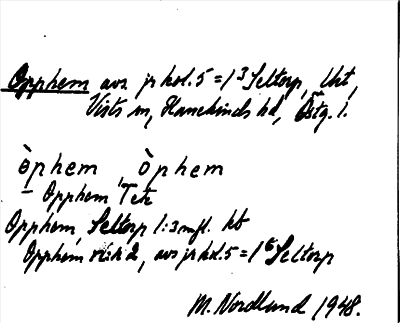 Opphem avs. jr kol. 5 = 1³ Seltorp, Ukt,
Vists sn, Hanekinds hd, Östg. l.
òphem, òphem
– Opphem Tek
Opphem, Seltorp 1:3 mfl. kb
Opphem avs jr kol. 5 = 1⁶ Seltorp
M. Nordlund 1948.